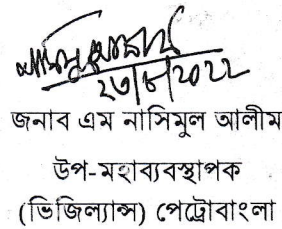 ২৩/৮/২০২২
জনাব এম নাসিমুল আলীম
উপ-মহাব্যবস্থাপক
(ভিজিল্যান্স) পেট্রোবাংলা